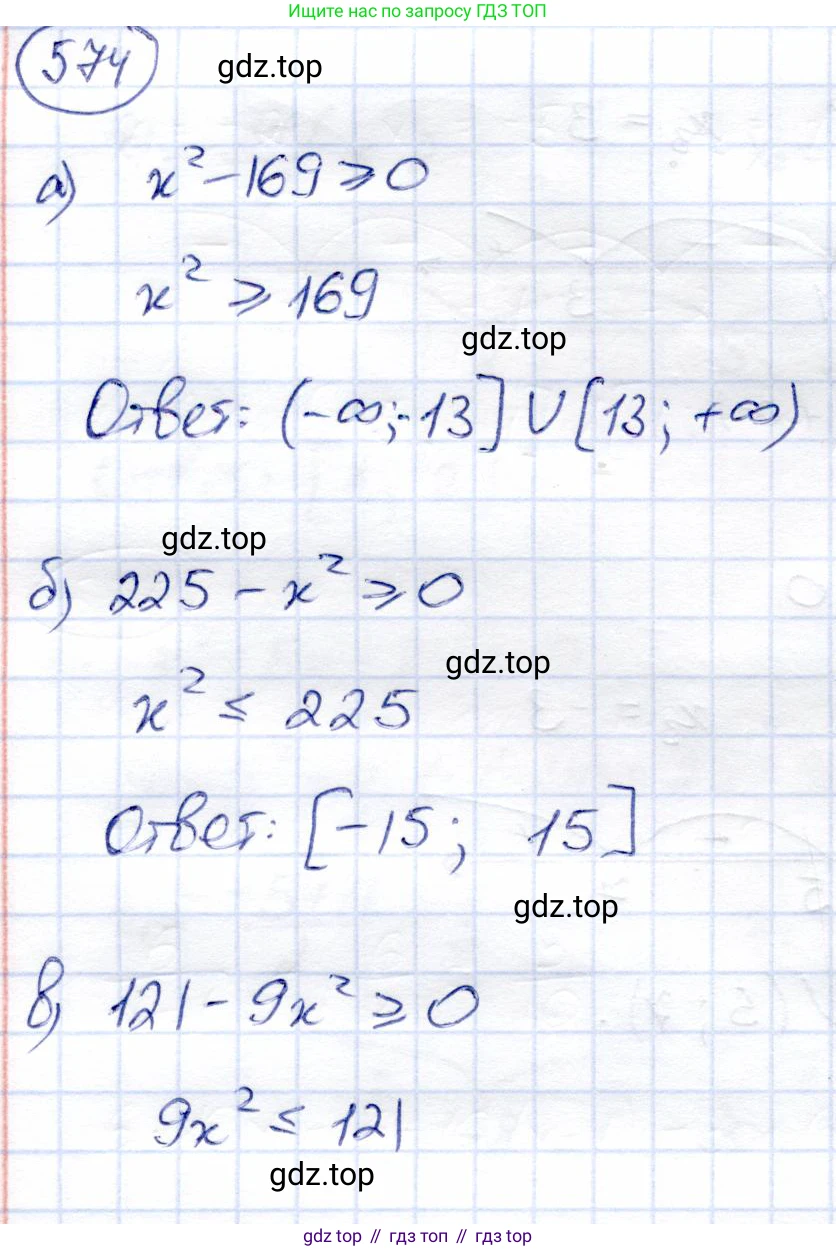 Ищите нас по запросу ГДЗ ТОП
574
gdz.top
а) x² - 169 ⩾ 0
x² ⩾ 169
gdz.top
Ответ: (-∞; -13] ∪ [13; +∞)
gdz.top
б) 225 - x² ⩾ 0
gdz.top
x² ≤ 225
Ответ: [-15; 15]
gdz.top
в) 121 - 9x² ⩾ 0
9x² ≤ 121
gdz.top
gdz top // гдз топ // gdz top